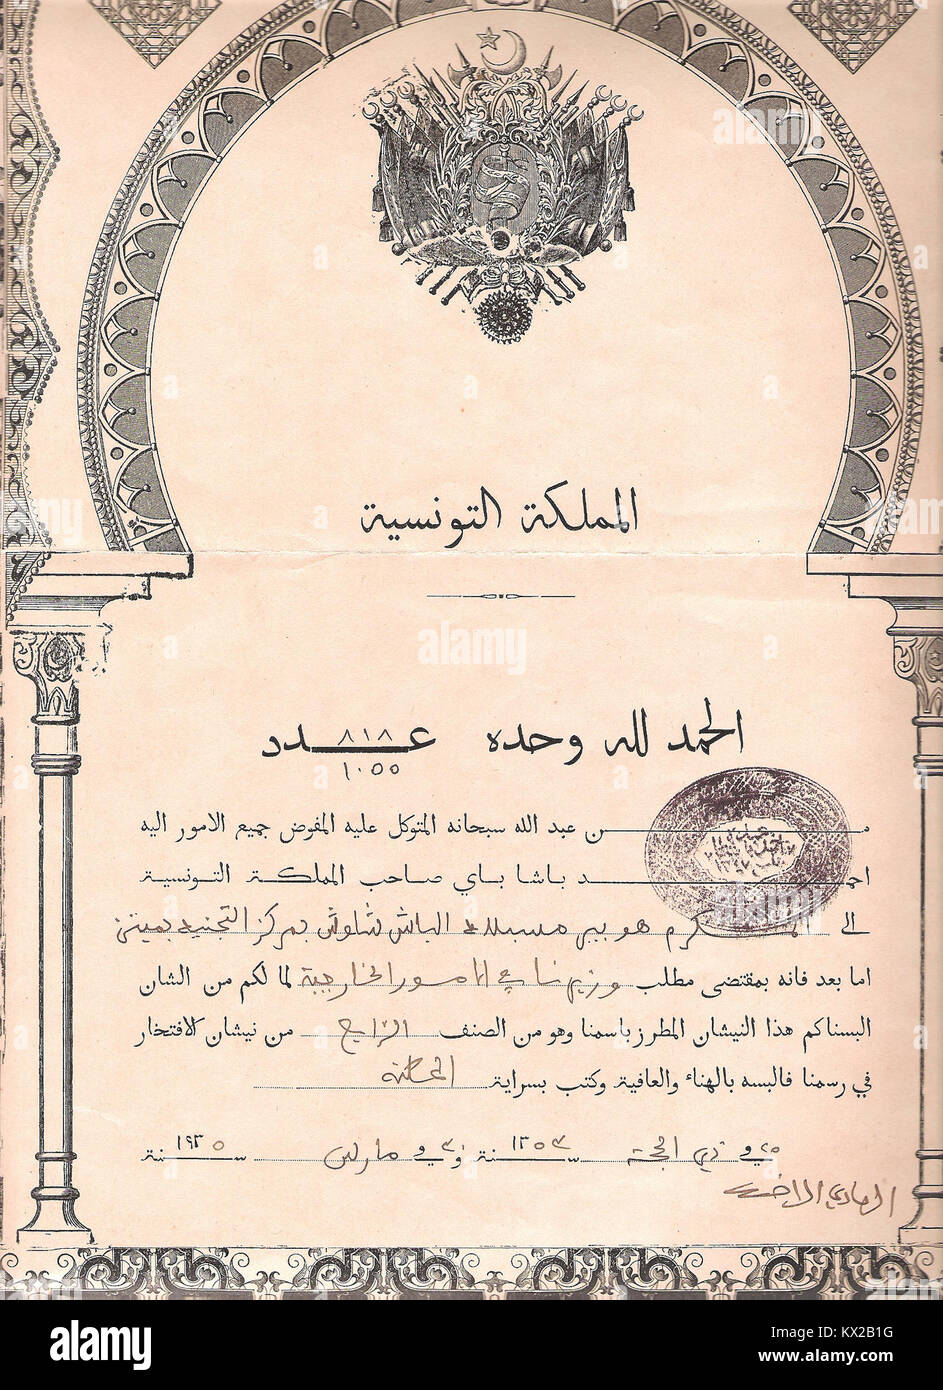 المملكة التونسية
الحمد لله وحده عدد ٨١٨
١٠٥٥
من عبد الله سبحانه المتوكل عليه المفوض جميع الامور اليه
احمد باشا باي صاحب المملكة التونسية
الى المكرم هوبير الباش شاوش بمركز التجنيد
اما بعد فانه بمقتضى مطلب وزيرنا الامور الخارجية لما لكم من الشان
البسناكم هذا النيشان المطرز باسمنا وهو من الصنف الرابع من نيشان الافتخار
في رسمنا فالبسه بالهناء والعافية وكتب بسراية
في ذي الحجة سنة ١٣٥٣ وفي مارس سنة ١٩٣٥
الهادي الاخوة
alamy
alamy stock photo
KX2B1G
www.alamy.com